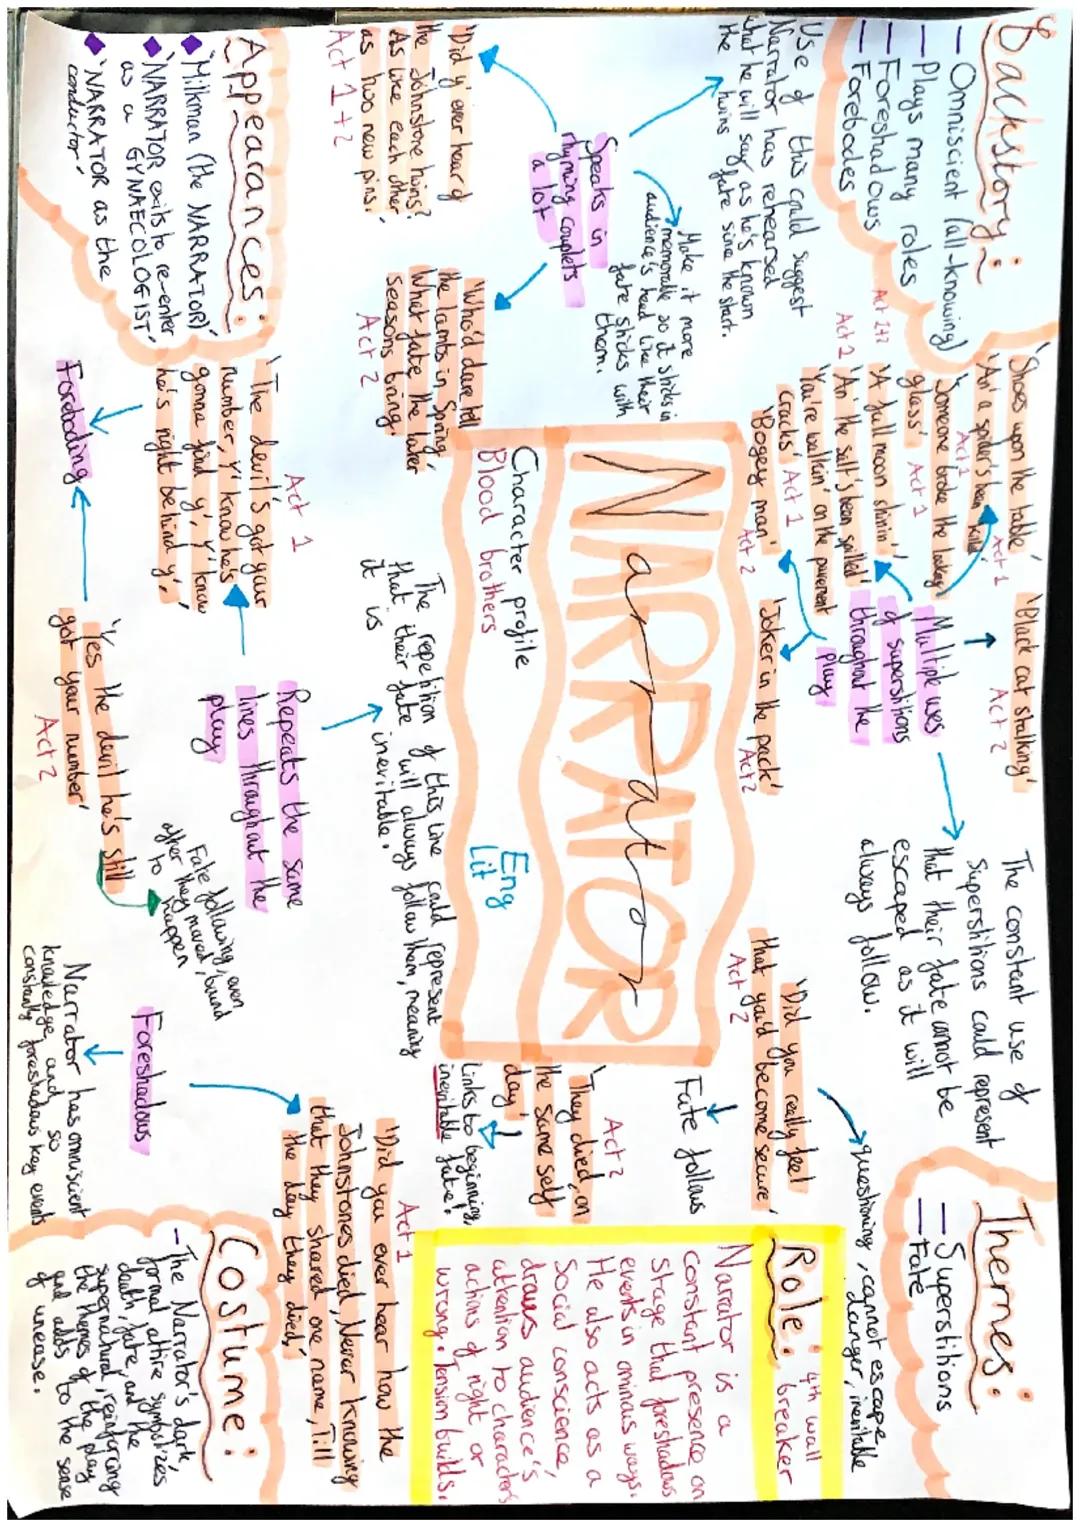 Backstory:
— Omniscient (all-knowing)
— Plays many roles
— Foreshadows
— Forebodes
Use of this could suggest
Narrator has rehearsed
what he will say as he's known
the twins fate since the start.
Make it more
memorable so it sticks in
audience's head like their
fate sticks with
them.
Speaks in
rhyming couplets
a lot
'Did y' ever hear of
the Johnstone twins?
As like each other
as two new pins.'
Act 1+2
'Who'd dare tell
the lambs in Spring,
What fate the later
seasons bring.'
Act 2
Appearances:
'Milkman (the NARRATOR)'
'NARRATOR exits to re-enter
as a GYNAECOLOGIST'
'NARRATOR as the
conductor'
'Shoes upon the table'
Act 1
'An' a spider's been killed'
Act 1
'Someone broke the lookin'
glass' Act 1
Act 1+2
'A full moon shinin''
Act 2 'An' the salt's been spilled'
'You're walkin' on the pavement
cracks' Act 1
'Bogey man'
Act 2
'Black cat stalking'
Act 2
Multiple uses
of superstitions
throughout the
play
'Joker in the pack'
Act 2
The constant use of
Superstitions could represent
that their fate cannot be
escaped as it will
always follow.
Themes:
— Superstitions
— Fate
NARRATOR
Narrator
Character profile
Blood brothers
Eng
Lit
'Did you really feel
that you'd become secure'
Act 2
questioning, cannot escape
danger, inevitable
Fate follows
Act 2
'They died, on
the same self
day'
Links to beginning,
inevitable fate!
Role: 4th wall
breaker
Narrator is a
constant presence on
stage that foreshadows
events in ominous ways.
He also acts as a
social conscience,
draws audience's
attention to characters
actions of right or
wrong. Tension builds.
Act 1
'The devil's got your
number, Y' know he's
gonna find y', Y' know
he's right behind y','
Foreboding
The repetition of this line could represent
that their fate will always follow them, meaning
it is inevitable.
Repeats the same
lines throughout the
play
'Yes the devil he's still
got your number'
Act 2
Fate following, even
after they moved, bound
to happen
Foreshadows
Narrator has omniscient
knowledge and so
constantly foreshadows key events
Act 1
'Did you ever hear how the
Johnstones died, Never knowing
that they shared one name, Till
the day they died'
Costume:
— The Narrator's dark,
formal attire symbolizes
death, fate, and the
supernatural, reinforcing
the themes of the play
and adds to the sense
of unease.